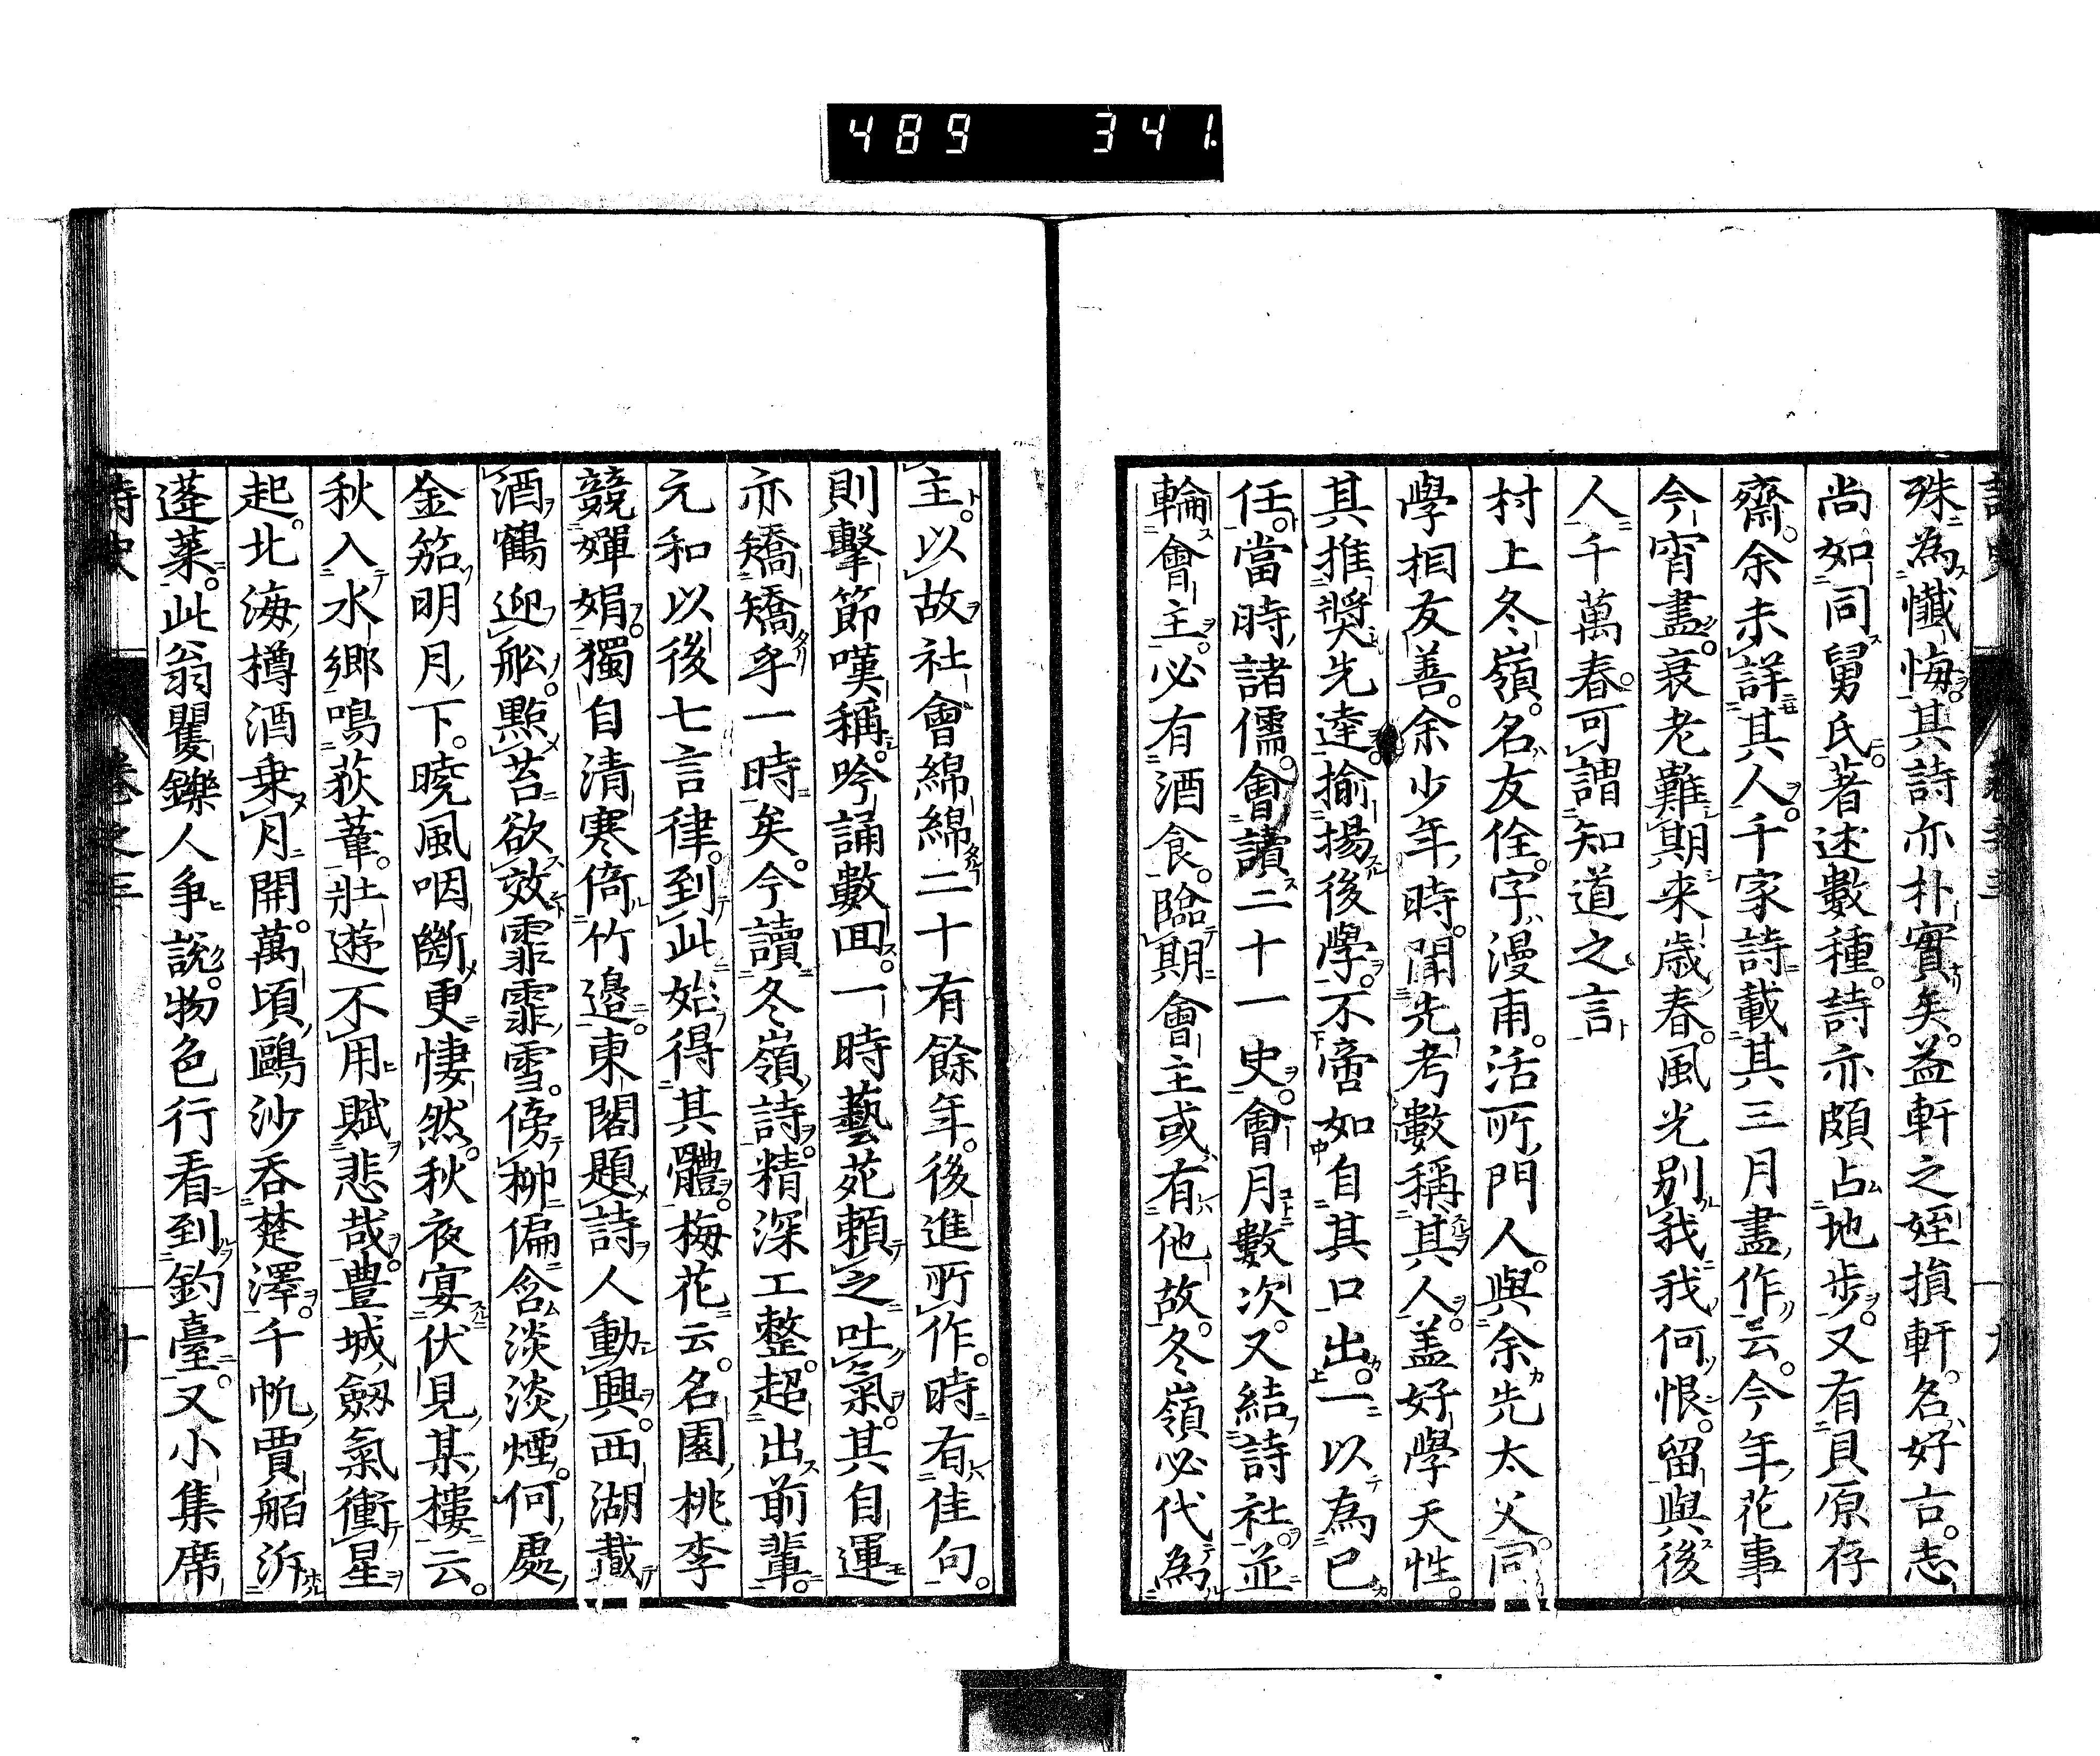 489 341
殊為懺悔其詩亦朴實矣。益軒之姪損軒。名好古。志
尚如同舅氏。著述數種。詩亦頗占地步。又有貝原存
齋。余未詳其人。千家詩載其三月盡作云。今年花事
今宵盡。衰老難期来歳春。風光別我我何恨。留與後
人千萬春。可謂知道之言
村上冬嶺。名友佺。字漫甫。活所門人。與余先太父。同
學相友善。余少年時。聞先考數稱其人。盖好學天性。
其推奬先達。揄揚後學。不啻如自其口出。一以為己
任。當時諸儒。會讀二十一史。會月數次。又結詩社。並
輪會主。必有酒食。臨期會主或有他故。冬嶺必代為
主。以故社會綿綿二十有餘年。後進所作。時有佳句。
則擊節嘆稱。吟誦數回。一時藝苑頼之吐氣。其自運
亦矯矯乎一時矣。今讀冬嶺詩。精深工整。超出前輩。
元和以後七言律。到此始得其體。梅花云。名園桃李
競嬋娟。獨自清寒倚竹邉。東閣題詩人動興。西湖載
酒鶴迎舩。點苔欲效霏霏雪。傍柳偏含淡淡煙。何處
金笳明月下。曉風咽斷更悽然。秋夜宴伏見某樓云。
秋入水郷鳴荻葦。壯遊不用賦悲哉。豊城劔氣衝星
起。北海樽酒乗月開。萬頃鷗沙呑楚澤。千帆賈舶泝
蓬萊。此翁矍鑠人爭說。物色行看到釣臺。又小集席
詩史 卷之三 十